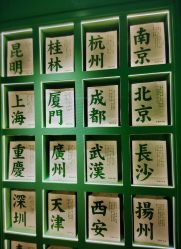 昆明 桂林 杭州 南京
上海 厦門 成都 北京
重慶 廣州 武漢 長沙
深圳 天津 西安 揚州